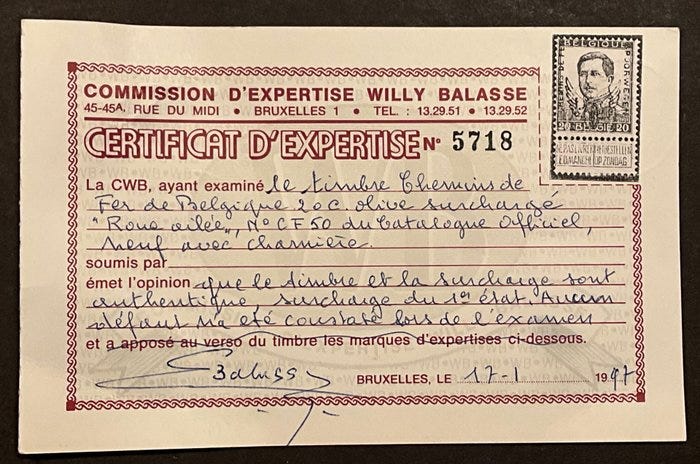 COMMISSION D'EXPERTISE WILLY BALASSE
45-45A, RUE DU MIDI • BRUXELLES 1 • TEL. : 13.29.51 • 13.29.52
CERTIFICAT D'EXPERTISE N° 5718
La CWB, ayant examiné le timbre Chemins de
Fer de Belgique 20c. olive surchargé
"Roue ailée", N° CF50 du Catalogue Officiel,
neuf avec charnière.
soumis par
émet l'opinion que le timbre et la surcharge sont
authentique, surcharge du 1er état. Aucun
défaut n'a été constaté lors de l'examen
et a apposé au verso du timbre les marques d'expertises ci-dessous.
Balasse
BRUXELLES, LE 17-1 1997
BELGIQUE
20 BELGIË 20
NE PAS LIVRER
NIET BESTELLEN
OP ZONDAG